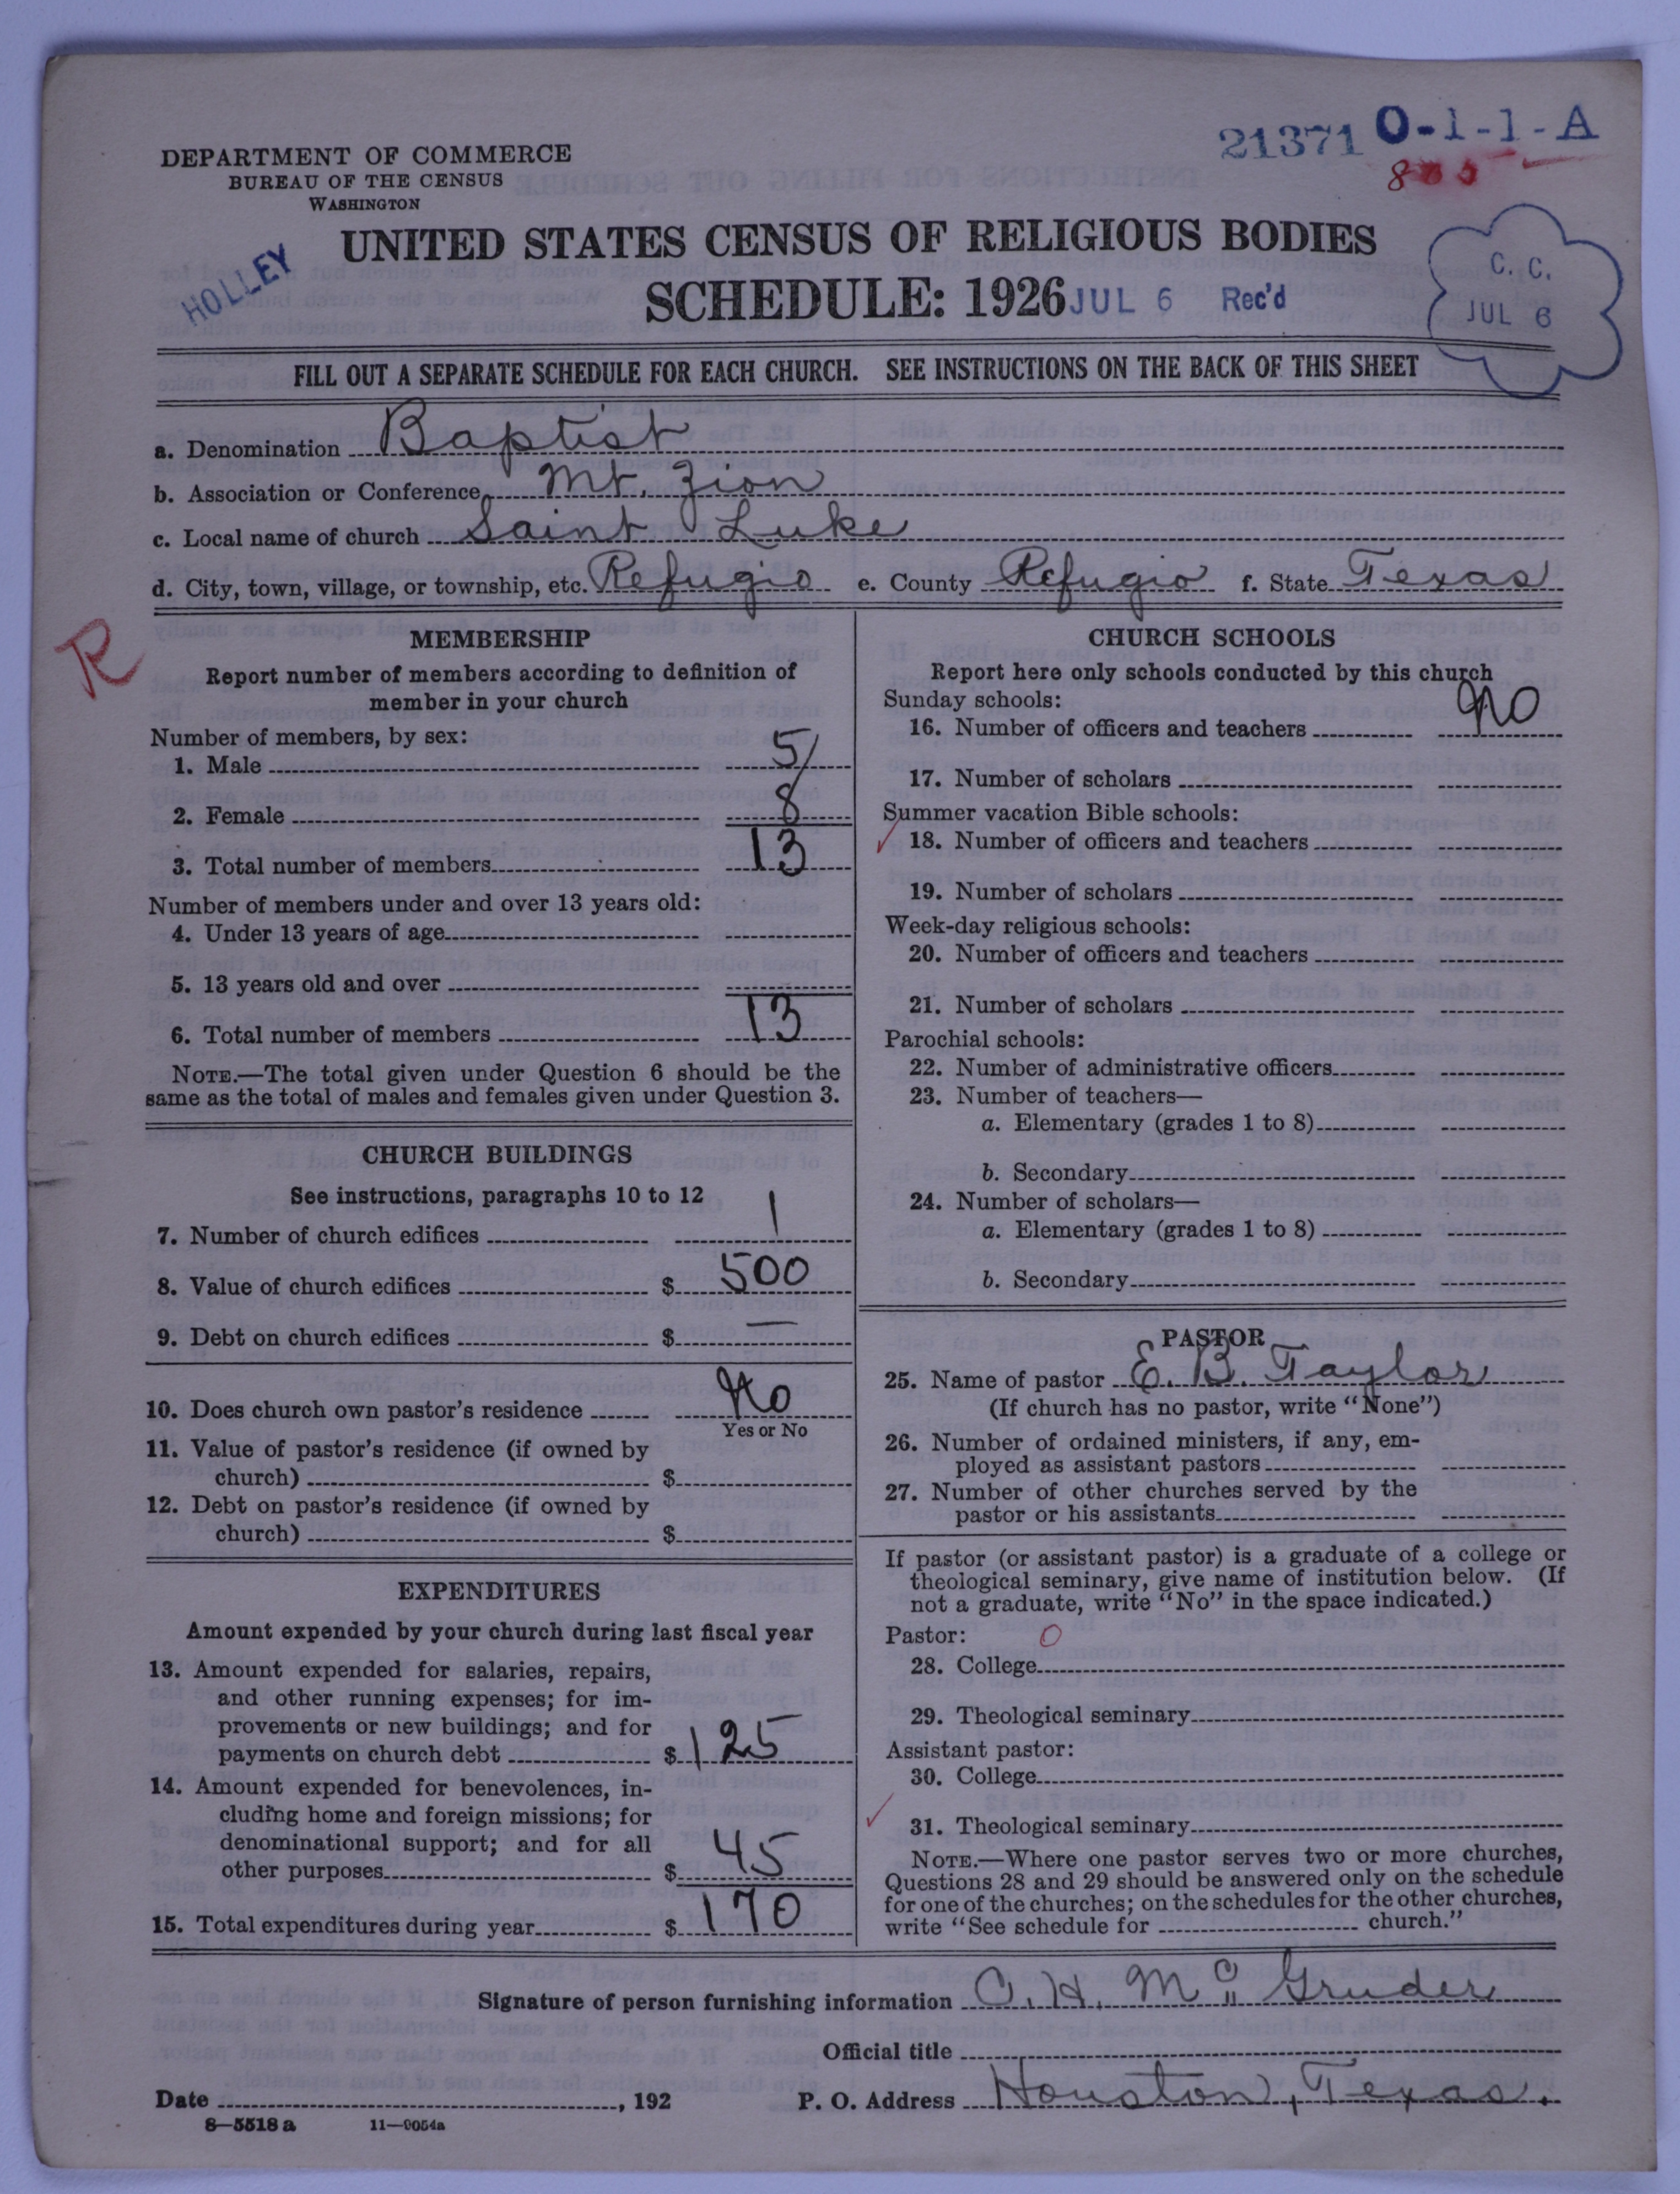 21371 O-1-1-A
DEPARTMENT OF COMMERCE
BUREAU OF THE CENSUS
WASHINGTON
8
UNITED STATES CENSUS OF RELIGIOUS BODIES
HOLLEY
SCHEDULE: 1926 JUL 6 Rec'd
C. C.
JUL 6
FILL OUT A SEPARATE SCHEDULE FOR EACH CHURCH. SEE INSTRUCTIONS ON THE BACK OF THIS SHEET
a. Denomination Baptist
b. Association or Conference Mt. Zion
c. Local name of church Saint Luke
d. City, town, village, or township, etc. Refugio e. County Refugio f. State Texas
R
MEMBERSHIP
Report number of members according to definition of
member in your church
Number of members, by sex:
1. Male 5
2. Female 8
3. Total number of members 13
Number of members under and over 13 years old:
4. Under 13 years of age
5. 13 years old and over
6. Total number of members 13
NOTE.—The total given under Question 6 should be the
same as the total of males and females given under Question 3.
CHURCH BUILDINGS
See instructions, paragraphs 10 to 12
7. Number of church edifices 1
8. Value of church edifices $ 500
9. Debt on church edifices $ —
10. Does church own pastor's residence No
Yes or No
11. Value of pastor's residence (if owned by
church) $
12. Debt on pastor's residence (if owned by
church) $
EXPENDITURES
Amount expended by your church during last fiscal year
13. Amount expended for salaries, repairs,
and other running expenses; for im-
provements or new buildings; and for
payments on church debt $ 125
14. Amount expended for benevolences, in-
cluding home and foreign missions; for
denominational support; and for all
other purposes $ 45
15. Total expenditures during year $ 170
CHURCH SCHOOLS
Report here only schools conducted by this church
Sunday schools:
16. Number of officers and teachers No
17. Number of scholars
Summer vacation Bible schools:
18. Number of officers and teachers
19. Number of scholars
Week-day religious schools:
20. Number of officers and teachers
21. Number of scholars
Parochial schools:
22. Number of administrative officers
23. Number of teachers—
a. Elementary (grades 1 to 8)
b. Secondary
24. Number of scholars—
a. Elementary (grades 1 to 8)
b. Secondary
PASTOR
25. Name of pastor E. B. Taylor
(If church has no pastor, write "None")
26. Number of ordained ministers, if any, em-
ployed as assistant pastors
27. Number of other churches served by the
pastor or his assistants
If pastor (or assistant pastor) is a graduate of a college or
theological seminary, give name of institution below. (If
not a graduate, write "No" in the space indicated.)
Pastor: 0
28. College
29. Theological seminary
Assistant pastor:
30. College
31. Theological seminary
NOTE.—Where one pastor serves two or more churches,
Questions 28 and 29 should be answered only on the schedule
for one of the churches; on the schedules for the other churches,
write "See schedule for church."
Signature of person furnishing information C. H. McGruder
Official title
Date , 192 P. O. Address Houston, Texas.
8—5518 a 11—9054a